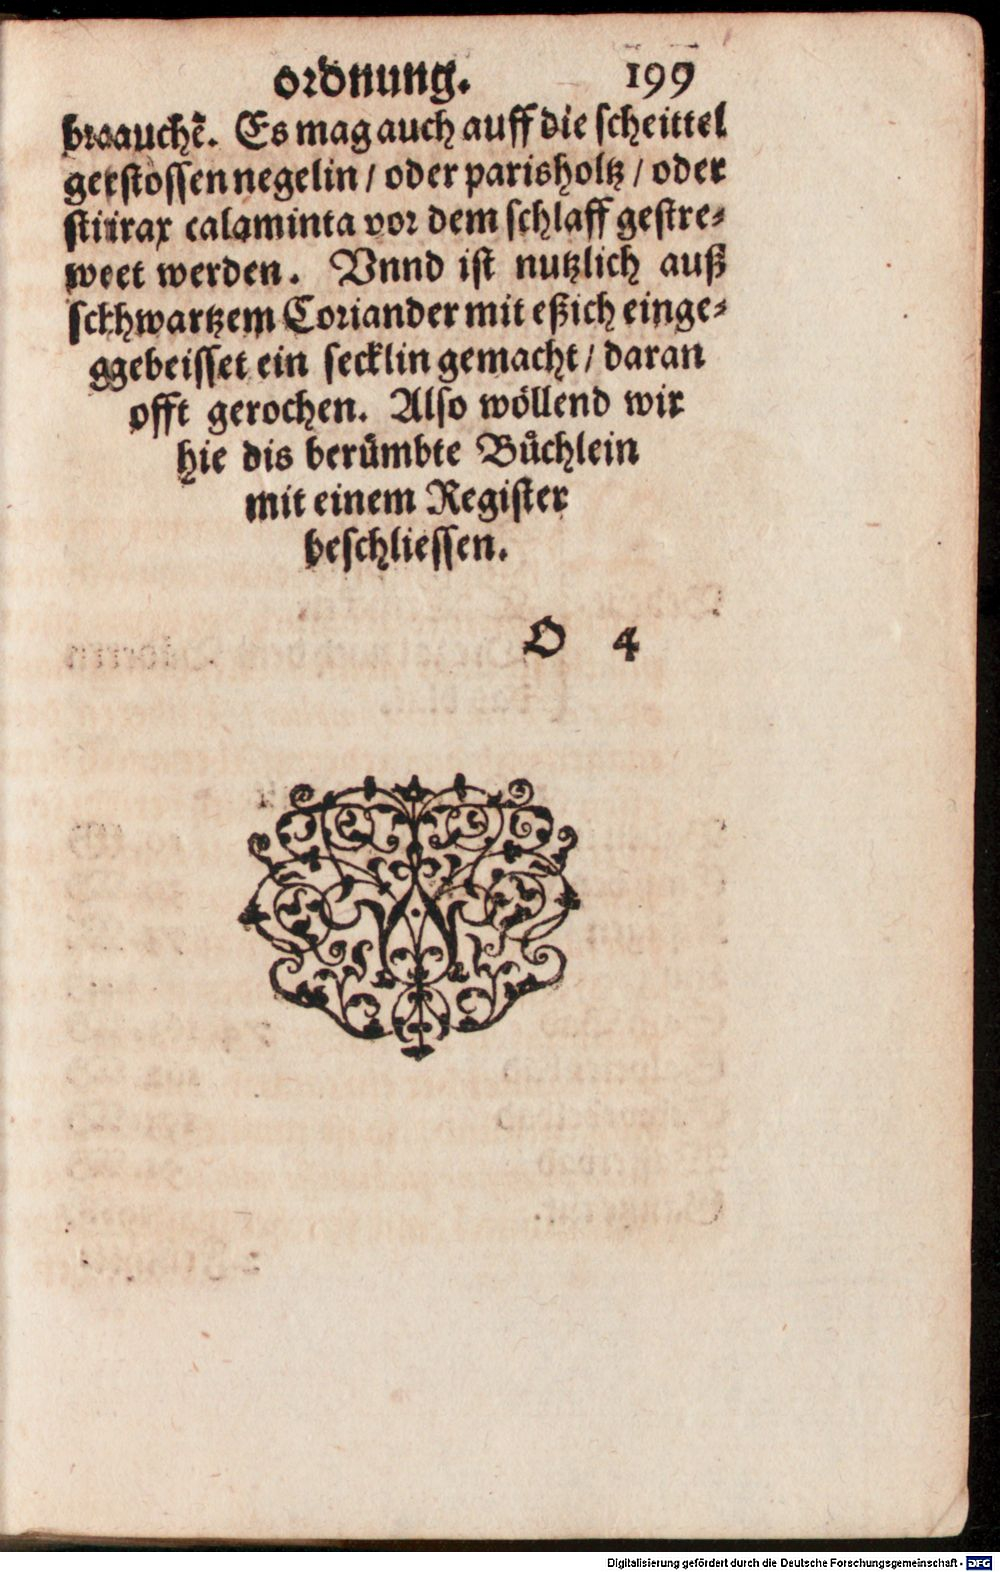 ordnung. 199
brauchē. Es mag auch auff die scheittel
gestossen negelin / oder parisholtz / oder
stirax calaminta vor dem schlaff gestre⸗
wet werden. Vnnd ist nutzlich auß
schwartzem Coriander mit eßich einge⸗
gebeisset ein secklin gemacht / daran
offt gerochen. Also wöllend wir
hie dis berümbte Bůchlein
mit einem Register
beschliessen.
O 4
Digitalisierung gefördert durch die Deutsche Forschungsgemeinschaft - DFG